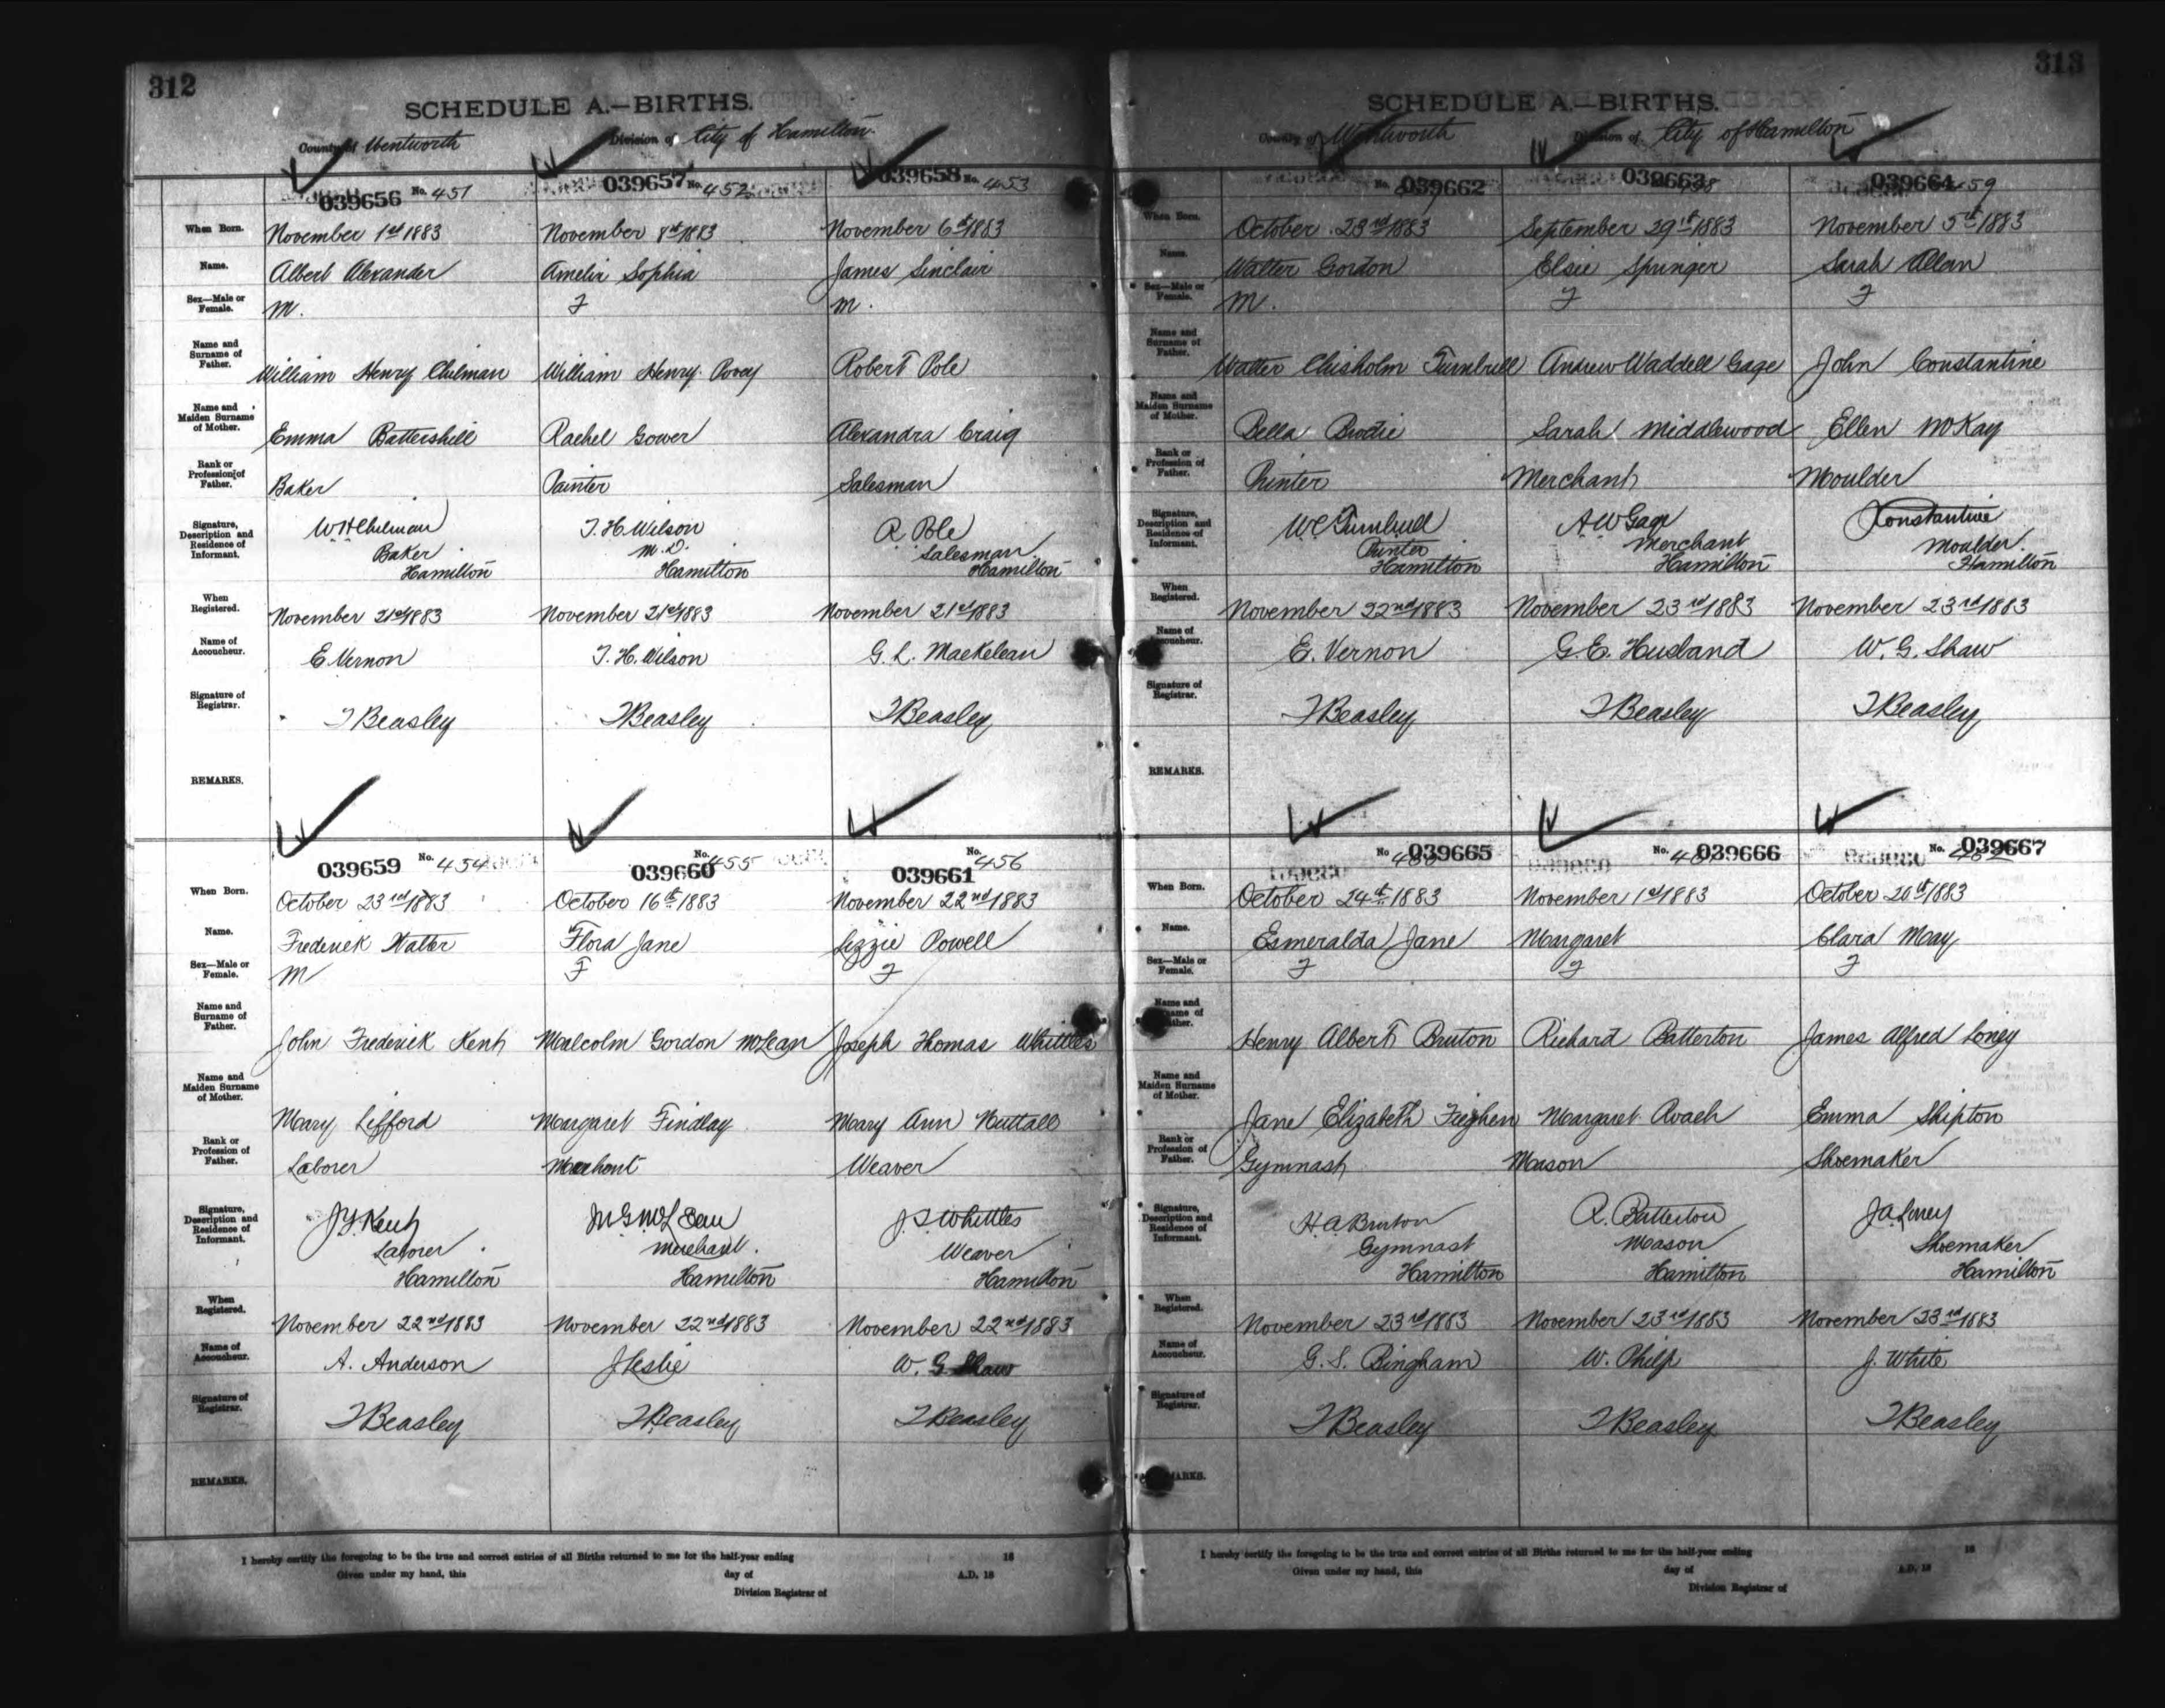 312
SCHEDULE A.—BIRTHS.
County of Wentworth Division of City of Hamilton
039656 No. 451 039657 No. 452 039658 No. 453
When Born. November 1st 1883 November 8th 1883 November 6th 1883
Name. Albert Alexander Amelia Sophia James Sinclair
Sex—Male or Female. M. F M.
Name and Surname of Father. William Henry Chilman William Henry Povey Robert Pole
Name and Maiden Surname of Mother. Emma Battershill Rachel Gower Alexandra Craig
Rank or Profession of Father. Baker Painter Salesman
Signature, Description and Residence of Informant. W H Chilman T. H. Wilson R Pole
Baker M.D. Salesman
Hamilton Hamilton Hamilton
When Registered. November 21st 1883 November 21st 1883 November 21st 1883
Name of Accoucheur. E. Vernon T. H. Wilson G. L. Mackelcan
Signature of Registrar. T Beasley T Beasley T Beasley
REMARKS.
039659 No. 454 039660 No. 455 039661 No. 456
When Born. October 23rd 1883 October 16th 1883 November 22nd 1883
Name. Frederick Walter Flora Jane Lizzie Powell
Sex—Male or Female. M F F
Name and Surname of Father. John Frederick Kent Malcolm Gordon McLean Joseph Thomas Whittles
Name and Maiden Surname of Mother. Mary Lifford Margaret Findlay Mary Ann Nuttall
Rank or Profession of Father. Laborer Merchant Weaver
Signature, Description and Residence of Informant. J F Kent M G McLean J. T Whittles
Laborer Merchant. Weaver
Hamilton Hamilton Hamilton
When Registered. November 22nd 1883 November 22nd 1883 November 22nd 1883
Name of Accoucheur. A. Anderson J Leslie W. G Shaw
Signature of Registrar. T Beasley T Beasley T Beasley
REMARKS.
I hereby certify the foregoing to be the true and correct entries of all Births returned to me for the half-year ending 18
Given under my hand, this day of A.D. 18
Division Registrar of
313
SCHEDULE A.—BIRTHS.
County of Wentworth Division of City of Hamilton
No. 039662 039663 039664 459
When Born. October 23rd 1883 September 29th 1883 November 5th 1883
Name. Walter Gordon Elsie Springer Sarah Allan
Sex—Male or Female. M. F F
Name and Surname of Father. Walter Chisholm Turnbull Andrew Waddell Gage John Constantine
Name and Maiden Surname of Mother. Bella Brodie Sarah Middlewood Ellen McKay
Rank or Profession of Father. Printer Merchant Moulder
Signature, Description and Residence of Informant. W C Turnbull A W Gage J Constantine
Printer Merchant Moulder.
Hamilton Hamilton Hamilton
When Registered. November 22nd 1883 November 23rd 1883 November 23rd 1883
Name of Accoucheur. E. Vernon G. E. Husband W. G. Shaw
Signature of Registrar. T Beasley T Beasley T Beasley
REMARKS.
No. 039665 No. 039666 No. 039667
When Born. October 24th 1883 November 1st 1883 October 20th 1883
Name. Esmeralda Jane Margaret Clara May
Sex—Male or Female. F F F
Name and Surname of Father. Henry Albert Bruton Richard Batterton James Alfred Loney
Name and Maiden Surname of Mother. Jane Elizabeth Margaret Roach Emma Shipton
Rank or Profession of Father. Gymnast Mason Shoemaker
Signature, Description and Residence of Informant. H. A Bruton R. Batterton J A Loney
Gymnast Mason Shoemaker
Hamilton Hamilton Hamilton
When Registered. November 23rd 1883 November 23rd 1883 November 23rd 1883
Name of Accoucheur. G. S. Bingham W. Philp J. White
Signature of Registrar. T Beasley T Beasley T Beasley
I hereby certify the foregoing to be the true and correct entries of all Births returned to me for the half-year ending 18
Given under my hand, this day of A.D. 18
Division Registrar of